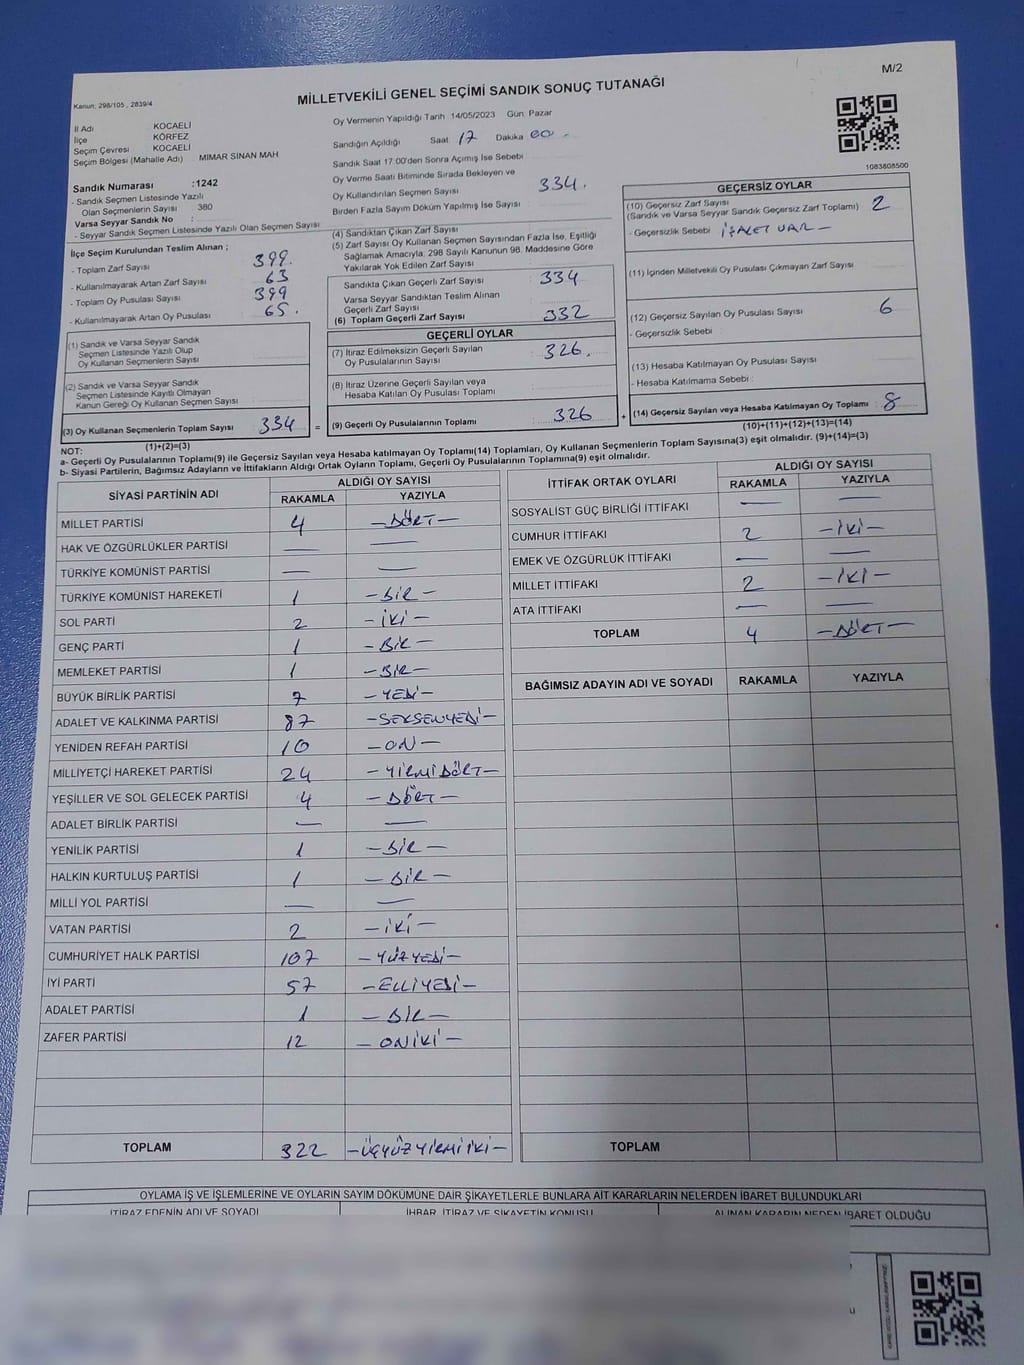 M/2
Kanun; 298/105 , 2839/4
MİLLETVEKİLİ GENEL SEÇİMİ SANDIK SONUÇ TUTANAĞI
İl Adı KOCAELİ
İlçe KÖRFEZ
Seçim Çevresi KOCAELİ
Seçim Bölgesi (Mahalle Adı) MIMAR SINAN MAH
Sandık Numarası :1242
- Sandık Seçmen Listesinde Yazılı
Olan Seçmenlerin Sayısı 380
Varsa Seyyar Sandık No :
- Seyyar Sandık Seçmen Listesinde Yazılı Olan Seçmen Sayısı
Oy Vermenin Yapıldığı Tarih 14/05/2023 Gün: Pazar
Sandığın Açıldığı Saat 17 Dakika 00
Sandık Saat 17:00'den Sonra Açımış İse Sebebi
Oy Verme Saati Bitiminde Sırada Bekleyen ve
Oy Kullandırılan Seçmen Sayısı 334.
Birden Fazla Sayım Döküm Yapılmış İse Sayısı
1083808500
İlçe Seçim Kurulundan Teslim Alınan ;
- Toplam Zarf Sayısı 399.
- Kullanılmayarak Artan Zarf Sayısı 63
- Toplam Oy Pusulası Sayısı 399
- Kullanılmayarak Artan Oy Pusulası 65.
(1) Sandık ve Varsa Seyyar Sandık
Seçmen Listesinde Yazılı Olup
Oy Kullanan Seçmenlerin Sayısı
(2) Sandık ve Varsa Seyyar Sandık
Seçmen Listesinde Kayıtlı Olmayan
Kanun Gereği Oy Kullanan Seçmen Sayısı :
(3) Oy Kullanan Seçmenlerin Toplam Sayısı 334 =
(1)+(2)=(3)
(4) Sandıktan Çıkan Zarf Sayısı
(5) Zarf Sayısı Oy Kullanan Seçmen Sayısından Fazla İse, Eşitliği
Sağlamak Amacıyla; 298 Sayılı Kanunun 98. Maddesine Göre
Yakılarak Yok Edilen Zarf Sayısı
Sandıkta Çıkan Geçerli Zarf Sayısı 334
Varsa Seyyar Sandıktan Teslim Alınan
Geçerli Zarf Sayısı
(6) Toplam Geçerli Zarf Sayısı 332
GEÇERLİ OYLAR
(7) İtiraz Edilmeksizin Geçerli Sayılan
Oy Pusulalarının Sayısı 326.
(8) İtiraz Üzerine Geçerli Sayılan veya
Hesaba Katılan Oy Pusulası Toplamı
(9) Geçerli Oy Pusulalarının Toplamı 326 +
GEÇERSİZ OYLAR
(10) Geçersiz Zarf Sayısı
(Sandık ve Varsa Seyyar Sandık Geçersiz Zarf Toplamı) 2
- Geçersizlik Sebebi İŞALET VAR —
(11) İçinden Milletvekili Oy Pusulası Çıkmayan Zarf Sayısı
(12) Geçersiz Sayılan Oy Pusulası Sayısı 6
- Geçersizlik Sebebi :
(13) Hesaba Katılmayan Oy Pusulası Sayısı
- Hesaba Katılmama Sebebi :
(14) Geçersiz Sayılan veya Hesaba Katılmayan Oy Toplamı : 8
(10)+(11)+(12)+(13)=(14)
NOT:
a- Geçerli Oy Pusulalarının Toplamı(9) ile Geçersiz Sayılan veya Hesaba katılmayan Oy Toplamı(14) Toplamları, Oy Kullanan Seçmenlerin Toplam Sayısına(3) eşit olmalıdır. (9)+(14)=(3)
b- Siyasi Partilerin, Bağımsız Adayların ve İttifakların Aldığı Ortak Oyların Toplamı, Geçerli Oy Pusulalarının Toplamına(9) eşit olmalıdır.
SİYASİ PARTİNİN ADI ALDIĞI OY SAYISI
RAKAMLA YAZIYLA
MİLLET PARTİSİ 4 —DÖRT—
HAK VE ÖZGÜRLÜKLER PARTİSİ — —
TÜRKİYE KOMÜNİST PARTİSİ — —
TÜRKİYE KOMÜNİST HAREKETİ 1 —BİR—
SOL PARTİ 2 —İKİ—
GENÇ PARTİ 1 —BİR—
MEMLEKET PARTİSİ 1 —BİR—
BÜYÜK BİRLİK PARTİSİ 7 —YEDİ—
ADALET VE KALKINMA PARTİSİ 87 —SEKSENYEDİ—
YENİDEN REFAH PARTİSİ 10 —ON—
MİLLİYETÇİ HAREKET PARTİSİ 24 —YİRMİDÖRT—
YEŞİLLER VE SOL GELECEK PARTİSİ 4 —DÖRT—
ADALET BİRLİK PARTİSİ — —
YENİLİK PARTİSİ 1 —BİR—
HALKIN KURTULUŞ PARTİSİ 1 —BİR—
MİLLİ YOL PARTİSİ — —
VATAN PARTİSİ 2 —İKİ—
CUMHURİYET HALK PARTİSİ 107 —YÜZYEDİ—
İYİ PARTİ 57 —ELLİYEDİ—
ADALET PARTİSİ 1 —BİR—
ZAFER PARTİSİ 12 —ONİKİ—
TOPLAM 322 —ÜÇYÜZYİRMİİKİ—
İTTİFAK ORTAK OYLARI ALDIĞI OY SAYISI
RAKAMLA YAZIYLA
SOSYALİST GÜÇ BİRLİĞİ İTTİFAKI — —
CUMHUR İTTİFAKI 2 —İKİ—
EMEK VE ÖZGÜRLÜK İTTİFAKI — —
MİLLET İTTİFAKI 2 —İKİ—
ATA İTTİFAKI — —
TOPLAM 4 —DÖRT—
BAĞIMSIZ ADAYIN ADI VE SOYADI RAKAMLA YAZIYLA
TOPLAM
OYLAMA İŞ VE İŞLEMLERİNE VE OYLARIN SAYIM DÖKÜMÜNE DAİR ŞİKAYETLERLE BUNLARA AİT KARARLARIN NELERDEN İBARET BULUNDUKLARI
İTİRAZ EDENİN ADI VE SOYADI İHBAR, İTİRAZ VE ŞİKAYETİN KONUSU ALINAN KARARIN NEDEN İBARET OLDUĞU